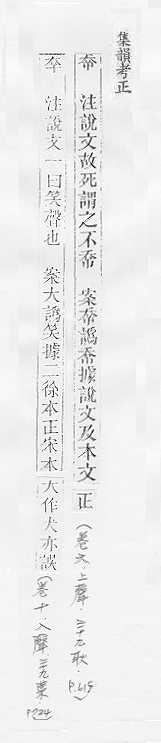 集韻考正
𡴘 注說文故死謂之不𡴘 案𡴘譌𡴘據說文及本文正(卷六.上聲.三十九耿. P.615)
㚔 注說文一曰笑聲也 案大譌笑據二徐本正宋本大作犬亦誤(卷十.入聲.二九葉 P.724)